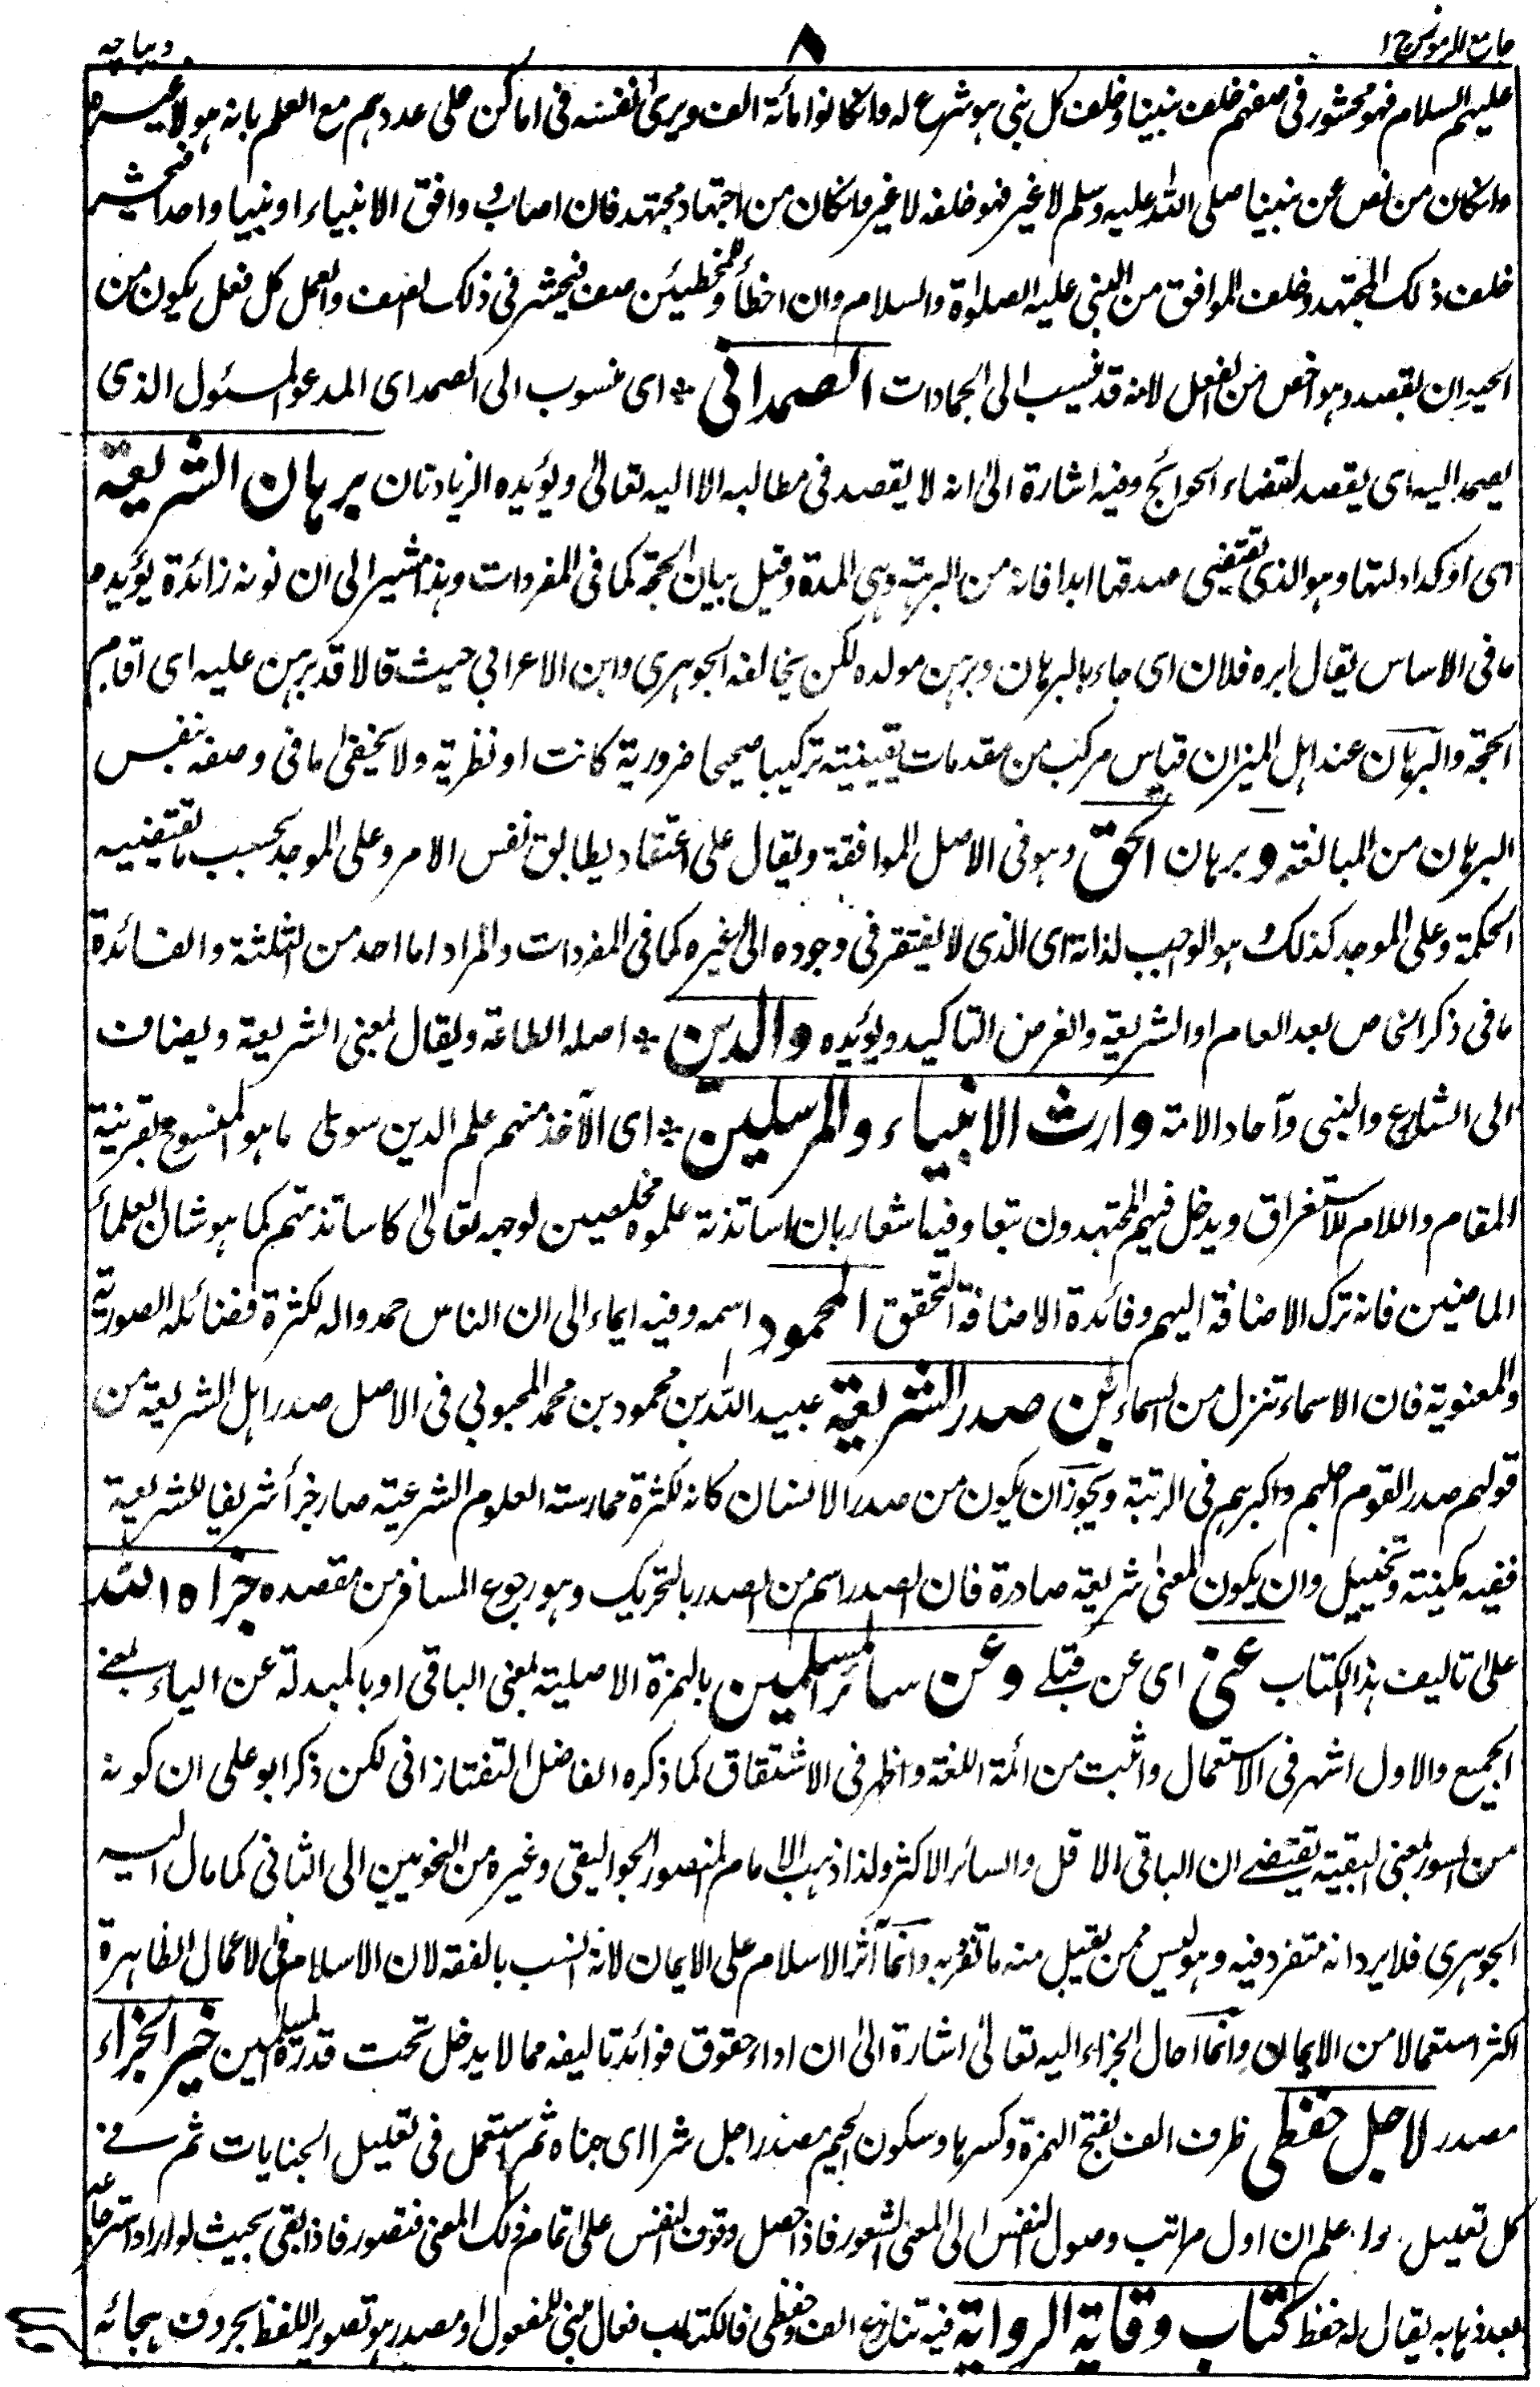 جامع الرموز ج ١
٨
ديباچه
عليهم السلام فهو محشور فى صفهم خلف نبينا وخلف كل نبى هو شرع له وان كانوا مائة الف ويرى نفسه فى اماكن على عددهم مع العلم بانه هو لا غيره
وان كان من نص عن نبينا صلى الله عليه وسلم لا غير فهو خلفه لا غير وان كان من اجتهاد مجتهد فان اصاب ووافق الانبياء او نبيا واحدا فيحشر
خلف ذلك المجتهد وخلف الموافق من النبى عليه الصلوة والسلام وان اخطأ وللمخطيئن صف فيحشر فى ذلك الصف والعمل كل فعل يكون من
الحيوان بقصد وهو اخص من الفعل لانه قد ينسب الى الجمادات الصمدانى * اى منسوب الى الصمد اى المدعو المسئول الذى
يصمد اليه اى يقصد لقضاء الحوائج وفيه اشارة الى انه لا يقصد فى مطالبه الا اليه تعالى ويؤيده الزيادتان برهان الشريعة
اى اوكد ادلتها وهو الذى يقتضى صدقها ابدا فانه من البرهة وهى المدة وقيل بيان الحجة كما فى المفردات وهذا مشير الى ان نونه زائدة يؤيده
ما فى الاساس يقال ابره فلان اى جاء بالبرهان وبرهن مولده لكن يخالفه الجوهرى وابن الاعرابى حيث قالا قد برهن عليه اى اقام
الحجة والبرهان عند اهل الميزان قياس مركب من مقدمات يقينية تركيبا صحيحا ضرورية كانت او نظرية ولا يخفى ما فى وصفه بنفس
البرهان من المبالغة و برهان الحق وهو فى الاصل الموافقة ويقال على اعتقاد يطابق نفس الامر وعلى الموجد بحسب ما تقتضيه
الحكمة وعلى الموجد كذلك وهو الواجب لذاته اى الذى لا يفتقر فى وجوده الى غيره كما فى المفردات والمراد اما احد من الثلثة والفائدة
ما فى ذكر الخاص بعد العام او الشريعة والغرض التاكيد ويؤيده والدين * اصله الطاعة ويقال لمعنى الشريعة ويضاف
الى الشارع والنبى وآحاد الامة وارث الانبياء والمرسلين * اى الآخذ منهم علم الدين سوى ما هو المنسوخ بقرينة
المقام واللام للاستغراق ويدخل فيهم المجتهدون تبعا وفيه اشعار بان اساتذته علموه مخلصين لوجه تعالى كاساتذتهم كما هو شان العلماء
الماضين فانه ترك الاضافة اليهم وفائدة الاضافة التحقق المحمود اسمه وفيه ايماء الى ان الناس حمدوا له لكثرة فضائله الصورية
والمعنوية فان الاسماء تنزل من السماء بن صدر الشريعة عبيد الله بن محمود بن محمد المحبوبى فى الاصل صدر اهل الشريعة من
قولهم صدر القوم اجلهم واكبرهم فى الرتبة ويجوز ان يكون من صدر الانسان كانه لكثرة ممارسته العلوم الشرعية صار جزأ شريفا للشريعة
ففيه مكنية وتخييل وان يكون المعنى شريعة صادرة فان الصدر اسم من الصدر بالتحريك وهو رجوع المسافر من مقصده جزاه الله
على تاليف هذا الكتاب عنى اى عن قبلى وعن سائر المسلمين بالهمزة الاصلية بمعنى الباقى او بالمبدلة عن الياء بمعنى
الجميع والاول اشهر فى الاستعمال واثبت من ائمة اللغة واظهر فى الاشتقاق كما ذكره الفاضل التفتازانى لكن ذكر ابو على ان كونه
من السور بمعنى البقية يقتضى ان الباقى الاقل والسائر الاكثر ولذا ذهب الامام المنصور الجواليقى وغيره من النحويين الى الثانى كما مال اليه
الجوهرى فلا يرد انه متفرد فيه وهو ليس ممن يقبل منه ما تفرد به وانما آثر الاسلام على الايمان لانه انسب بالفقه لان الاسلام فى الاعمال الظاهرة
اكثر استعمالا من الايمان وانما احال الجزاء اليه تعالى اشارة الى ان اداء حقوق فوائد تاليفه مما لا يدخل تحت قدرة المسلمين خير الجزاء
مصدر لاجل حفظى ظرف الف بفتح الهمزة وكسرها وسكون الجيم مصدر اجل شرا اى جناه ثم استعمل فى تعليل الجنايات ثم فى
كل تعليل واعلم ان اول مراتب وصول النفس الى المعنى الشعور فاذا حصل وقوف النفس على تمام ذلك المعنى فتصور فاذا بقى بحيث لو اراد استرجاعه
بعد ذهابه يقال له حفظ كتاب وقاية الرواية فيه تنازع الف وحفظى فالكتاب فعال مبنى للمفعول او مصدر هو تصوير اللفظ بحروف هجائه